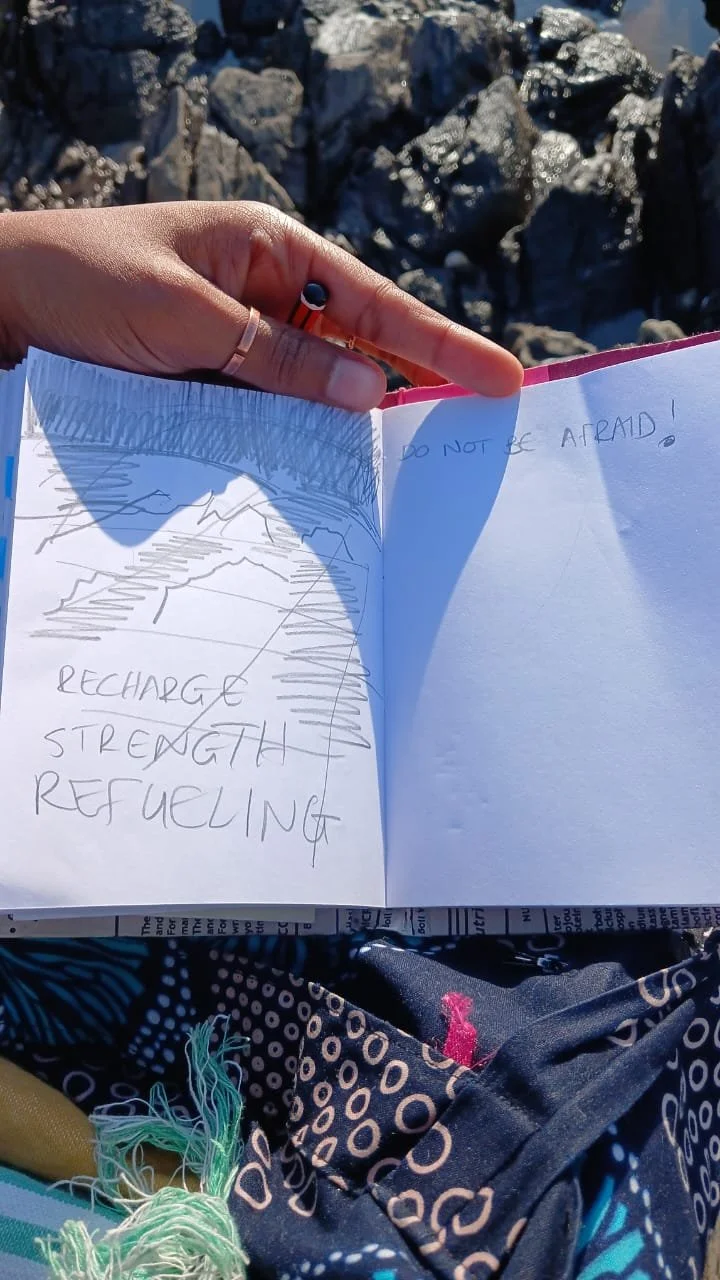 RECHARGE
STRENGTH
REFUELING
DO NOT BE AFRAID!